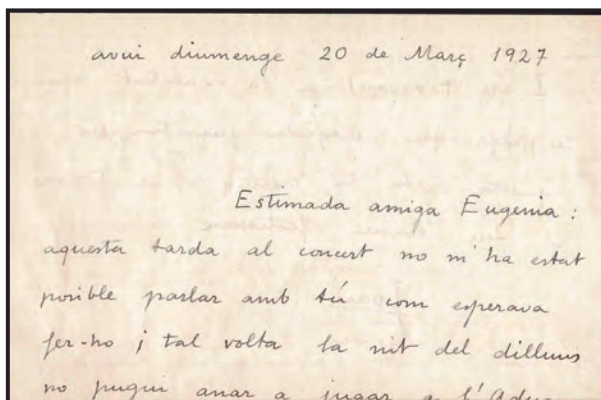 avui diumenge 20 de Març 1927
Estimada amiga Eugenia :
aquesta tarda al concert no m'ha estat
posible parlar amb tú com esperava
fer-ho i tal volta la nit del dilluns
no pugui anar a jugar a l'